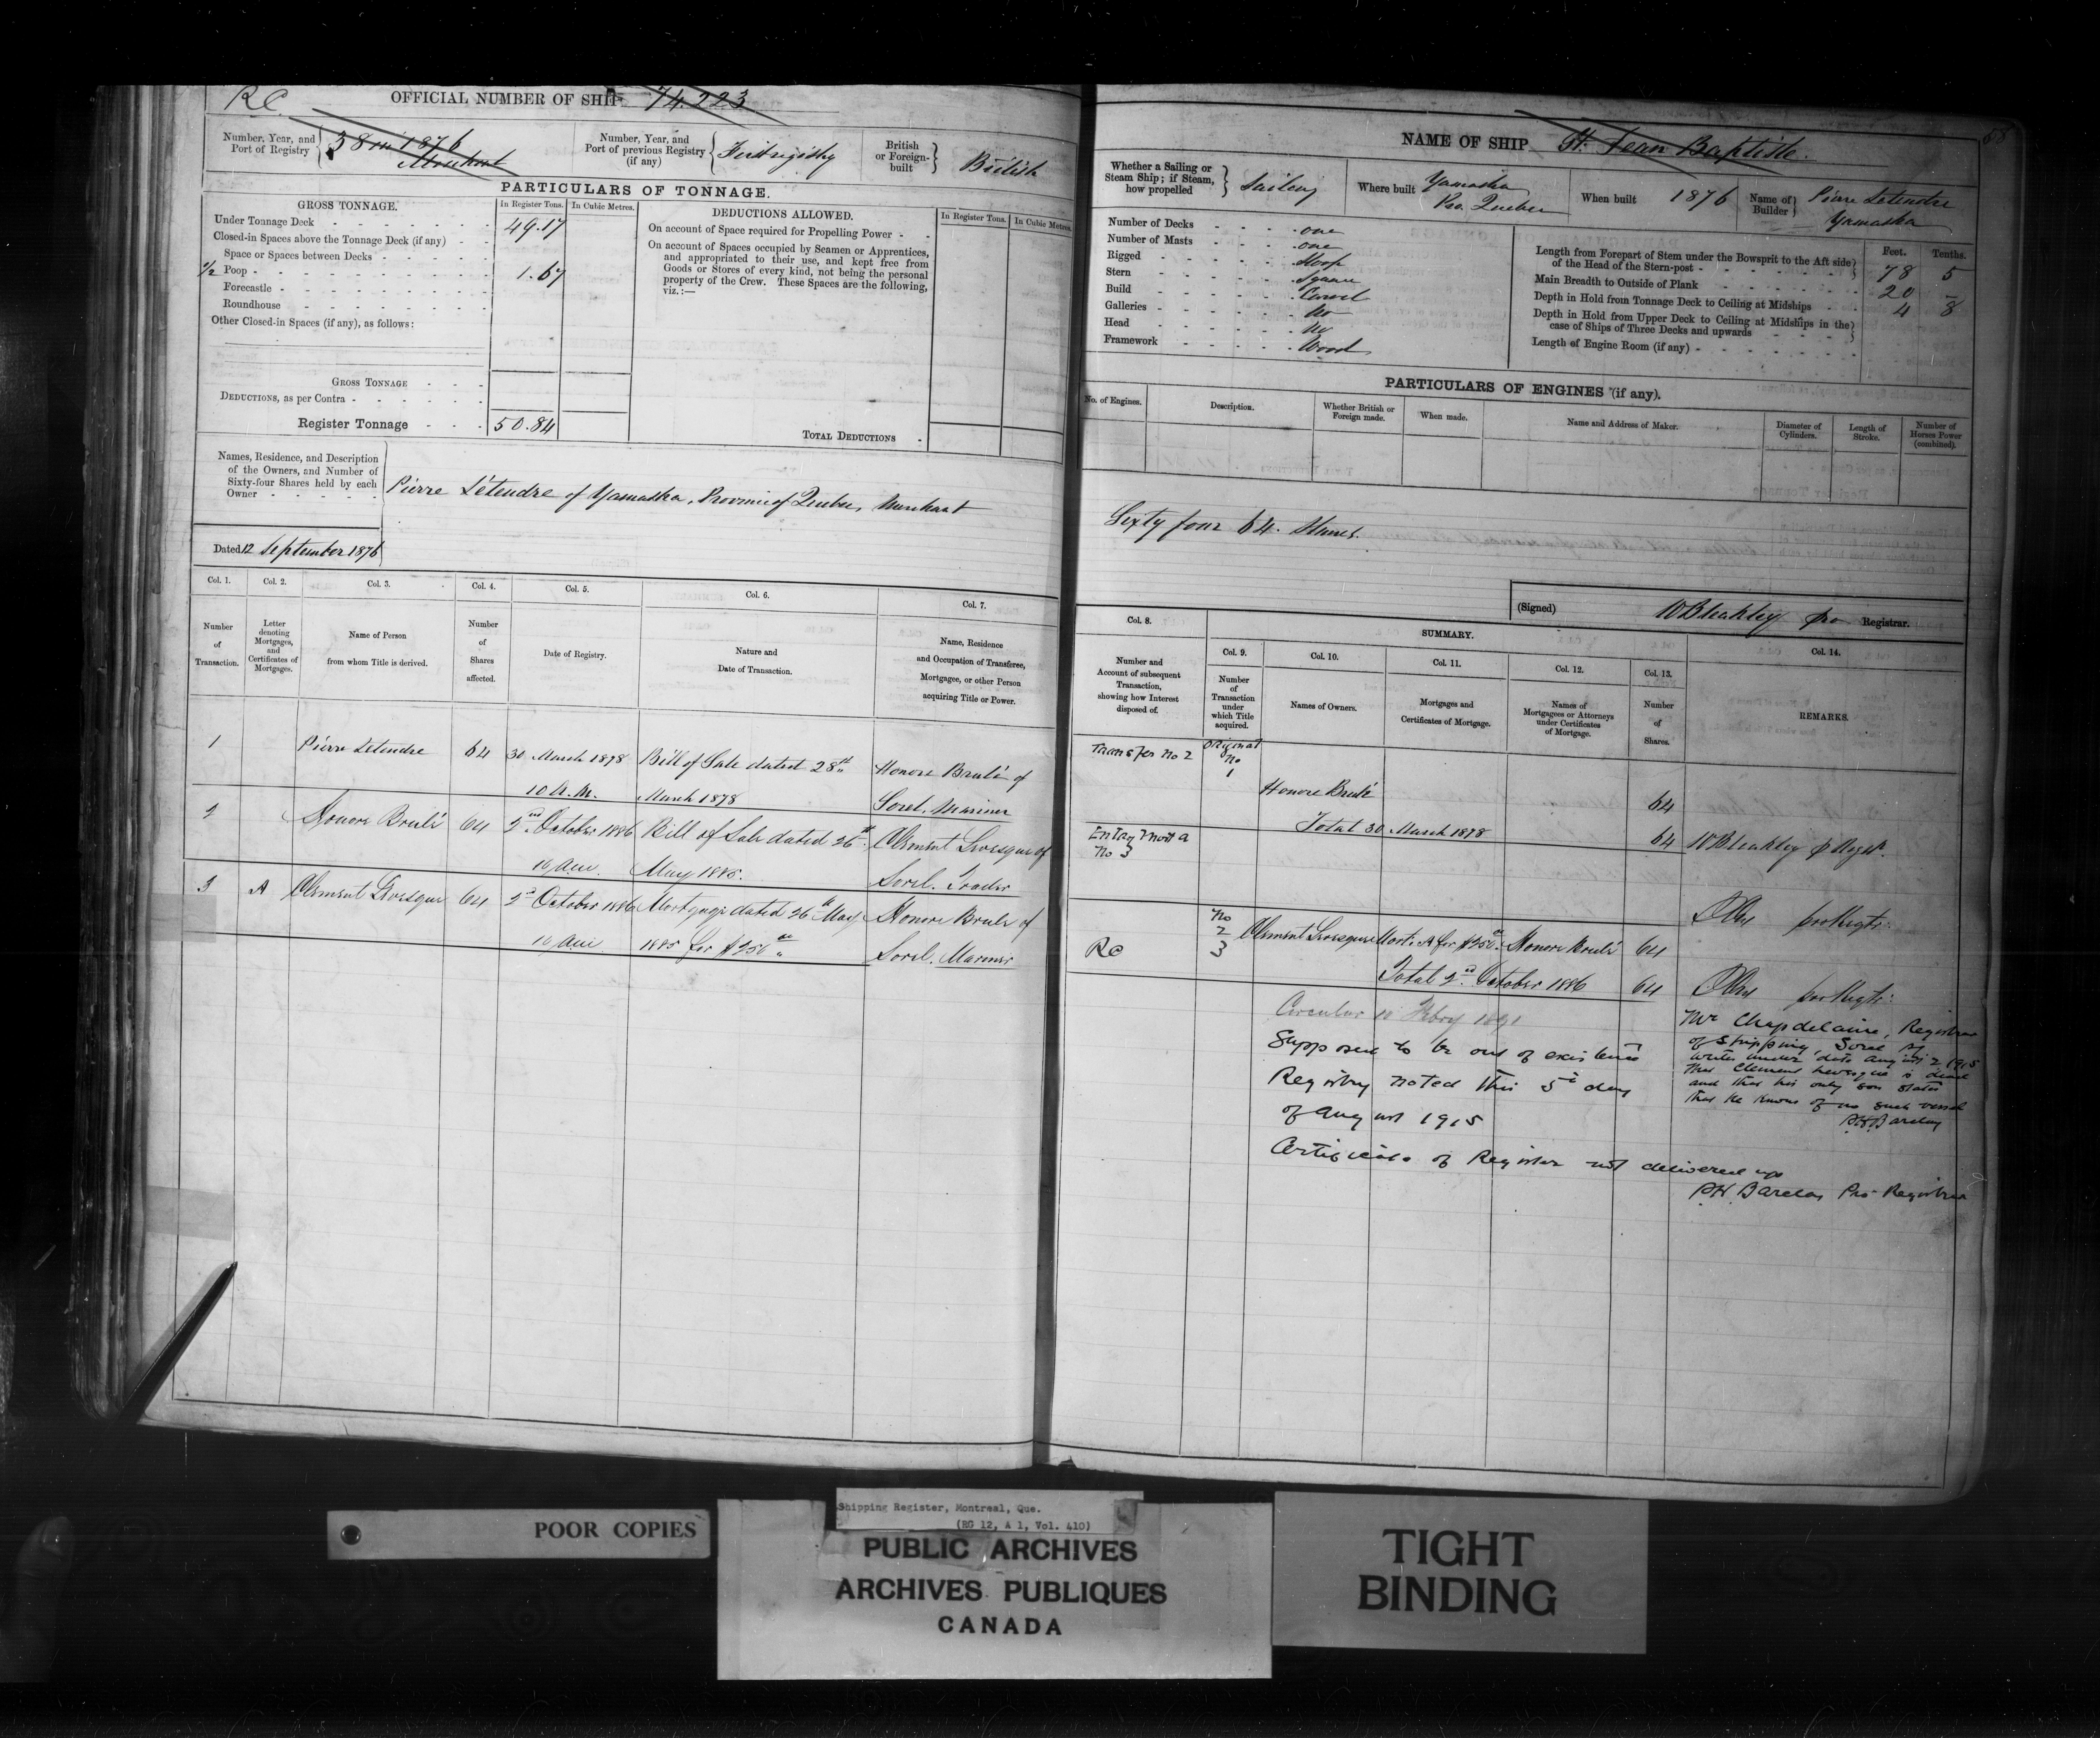 RC
OFFICIAL NUMBER OF SHIP 74.223
Number, Year, and Port of Registry
38 in 1876
Montreal
Number, Year, and Port of previous Registry (if any)
First registry
British or Foreign-built
British
PARTICULARS OF TONNAGE.
GROSS TONNAGE.
In Register Tons.
In Cubic Metres.
DEDUCTIONS ALLOWED.
In Register Tons.
In Cubic Metres.
Under Tonnage Deck 49.17
Closed-in Spaces above the Tonnage Deck (if any)
Space or Spaces between Decks
1/2 Poop 1.67
Forecastle
Roundhouse
Other Closed-in Spaces (if any), as follows:
GROSS TONNAGE
DEDUCTIONS, as per Contra
Register Tonnage 50.84
On account of Space required for Propelling Power
On account of Spaces occupied by Seamen or Apprentices,
and appropriated to their use, and kept free from
Goods or Stores of every kind, not being the personal
property of the Crew. These Spaces are the following,
viz.:—
TOTAL DEDUCTIONS
Names, Residence, and Description
of the Owners, and Number of
Sixty-four Shares held by each
Owner
Pierre Létendre of Yamaska, Province of Quebec, Merchant
Dated 12 September 1876
Col. 1. Col. 2. Col. 3. Col. 4. Col. 5. Col. 6. Col. 7.
Number of Transaction.
Letter denoting Mortgages, and Certificates of Mortgages.
Name of Person from whom Title is derived.
Number of Shares affected.
Date of Registry.
Nature and Date of Transaction.
Name, Residence and Occupation of Transferee, Mortgagee, or other Person acquiring Title or Power.
1 Pierre Letendre 64 30 March 1878 Bill of Sale dated 28th Honore Brulé of
10 A.M. March 1878 Sorel. Mariner
2 Honore Brulé 64 2nd October 1886 Bill of Sale dated 26th Clement Levesque of
10 am. May 1885. Sorel. Trader
3 A Clement Levesque 64 2d October 1886 Mortgage dated 26th May Honore Brule of
10 am 1885 for $250 Sorel. Mariner
NAME OF SHIP St. Jean Baptiste.
58
Whether a Sailing or Steam Ship; if Steam, how propelled
Sailing
Where built
Yamaska
Pro. Quebec
When built 1876
Name of Builder
Pierre Letendre
Yamaska
Number of Decks one
Number of Masts one
Rigged Sloop
Stern Square
Build Carvel
Galleries No
Head No
Framework Wood
Feet. Tenths.
Length from Forepart of Stem under the Bowsprit to the Aft side
of the Head of the Stern-post 78 5
Main Breadth to Outside of Plank 20 –
Depth in Hold from Tonnage Deck to Ceiling at Midships 4 8
Depth in Hold from Upper Deck to Ceiling at Midships in the
case of Ships of Three Decks and upwards
Length of Engine Room (if any)
PARTICULARS OF ENGINES (if any).
No. of Engines.
Description.
Whether British or Foreign made.
When made.
Name and Address of Maker.
Diameter of Cylinders.
Length of Stroke.
Number of Horses Power (combined).
Sixty four 64. Shares.
(Signed) W Bleakley pro Registrar.
Col. 8.
SUMMARY.
Col. 9. Col. 10. Col. 11. Col. 12. Col. 13. Col. 14.
Number and Account of subsequent Transaction, showing how Interest disposed of.
Number of Transaction under which Title acquired.
Names of Owners.
Mortgages and Certificates of Mortgage.
Names of Mortgagees or Attorneys under Certificates of Mortgage.
Number of Shares.
REMARKS.
Transfer No 2
Original
No
1
Honore Brulé 64
Total 30 March 1878 64 W Bleakley p Regst.
Entry Mort A
No 3
No
2 Clement Levesque Mort: A for $250 Honore Brulé 64
3
RC
Total 2d October 1886 64
Circular 18 Febry 1891
Supposed to be out of existence
Registry noted this 5th day
of August 1915
Certificate of Register not delivered up
Mr Chapdelaine, Registrar
of Shipping, Sorel
writes under date August 2 1915
that Clement Levesque is dead
and that his only son states
that he knows of no such vessel
PH Barclay
PH Barclay Pro Registrar
POOR COPIES
Shipping Register, Montreal, Que.
(RG 12, A 1, Vol. 410)
PUBLIC ARCHIVES
ARCHIVES PUBLIQUES
CANADA
TIGHT
BINDING